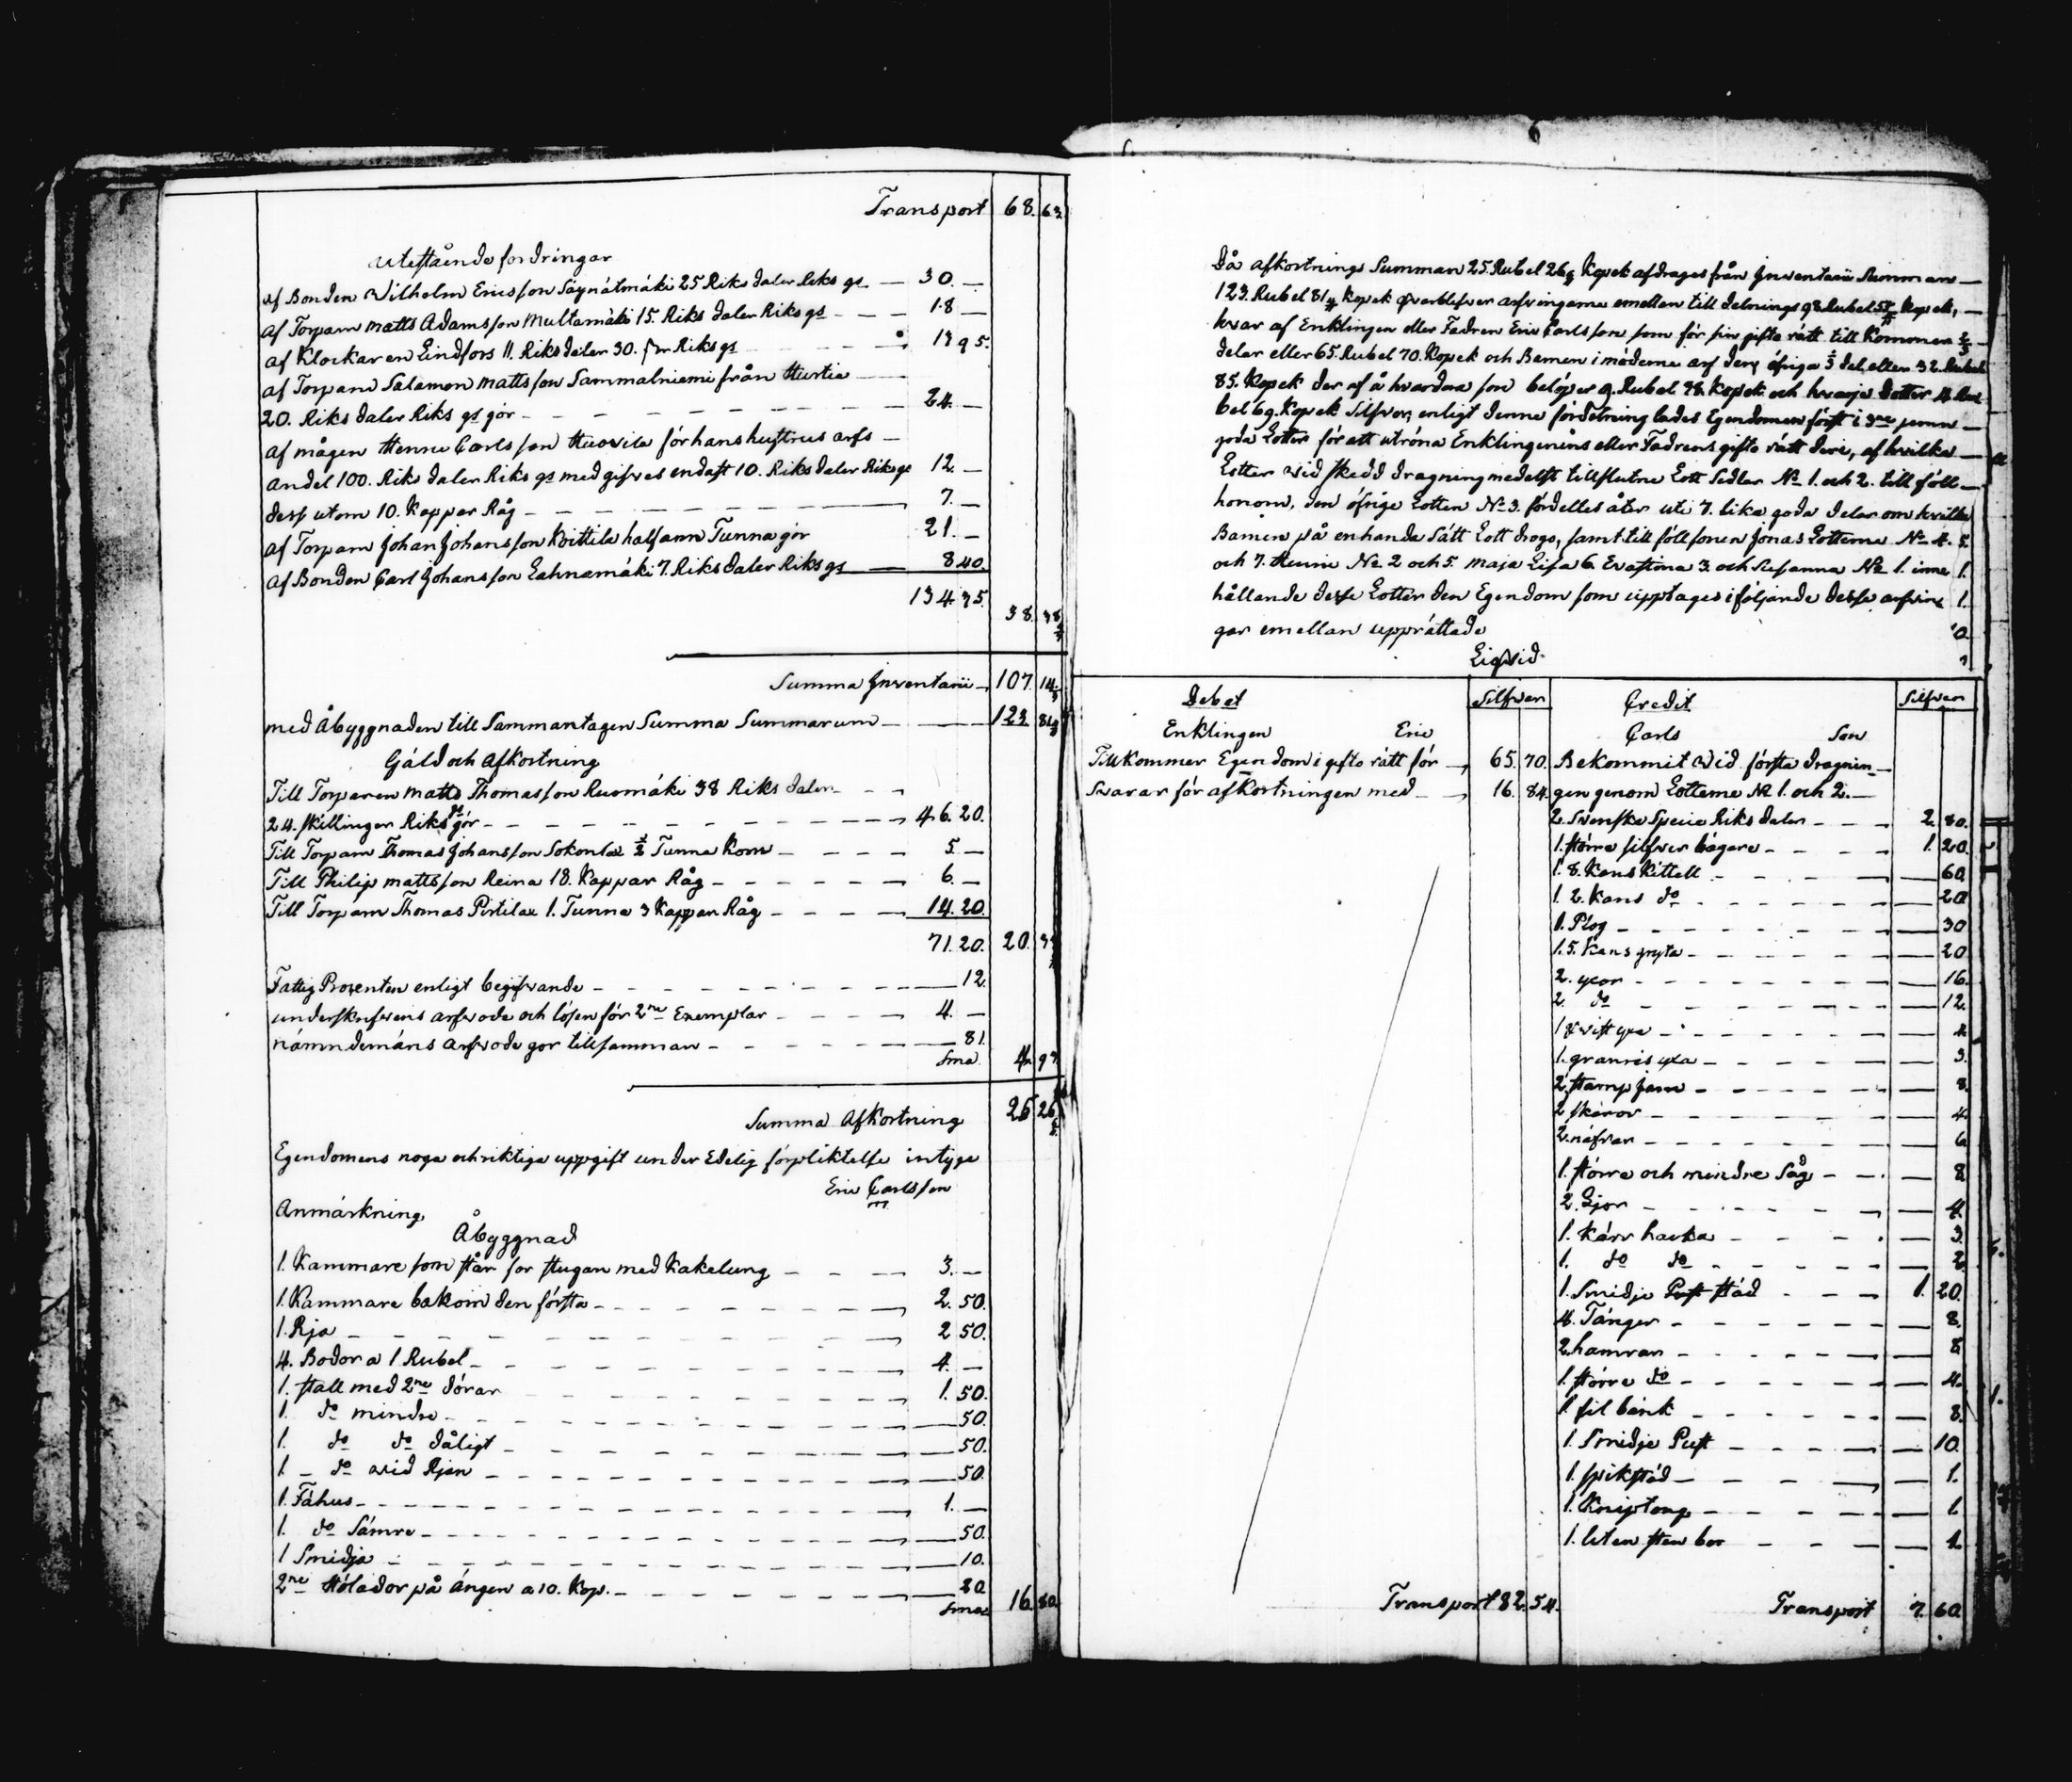 Transport 68. 63.
Utestående fordringar
af Bonden Wilhelm Ericsson Säynätmäki 25 Riksdaler Riks gs — 30. —
af Torparn Matts Adamsson Multamäki 15. Riksdaler Riks gs — 18 —
af Klockaren Lindfors 11. Riksdaler 30. Riks gs — 13 95.
af Torparn Salamon Mattsson Sammalniemi från Hurtia —
20. Riksdaler Riks gs gör — 24. —
af mågen Henric Carlsson Huovila för hans hustrus arfs —
andel 100. Riksdaler Riks gs medgifves endast 10. Riksdaler Riks gs 12. —
dess utom 10. Kappar Råg — 7. —
af Torparn Johan Johansson Kvittila half ann Tunna gör 21. —
af Bonden Carl Johansson Lahnamäki 7. Riksdaler Riks gs — 8 40.
134. 35. 38. 38
Summa Inventarii — 107. 14
med Åbyggnaden till Sammantagen Summa Summarum — 123. 81
Gäld och Afkortning
Till Torparen Matts Thomasson Ruomäki 38 Riksdaler —
24. skillingar Riks gs gör — 46. 20.
Till Torparn Thomas Johansson Sokonlax ½ Tunna Korn — 5 —
Till Philip Mattsson Reina 18. Kappar Råg — 6. —
Till Torparn Thomas Pirtila 1. Tunna 3 Kappar Råg — 14. 20.
71. 20. 20.
Fattig Procenten enligt begifvande — 12.
underskrifvens arfvode och lösen för 2ne Exemplar — 4. —
nämndemäns arfvode gör tillsamman — 81.
Sma 4. 97.
Summa Afkortning 25 26
Egendomens noga och riktiga uppgift under Edelig förpliktelse intyga
Eric Carlsson
Anmärkning
Åbyggnad
1. Kammare som står för stugan med Kakelung — 3. —
1. Kammare bakom den första — 2. 50.
1. Rja — 2 50.
4. Bodor a 1 Rubel — 4. —
1. stall med 2ne dörar 1. 50.
1. do mindre — 50.
1. do do dåligt — 50.
1. do wid Rjan — 50.
1. Fähus — 1. —
1. do Sämre — 50.
1 Smidja — 10.
2ne Höladar på ängen a 10. Kop. — 20
Sma 16. 80.
6
Då afkortnings Summan 25. Rubel 26 Kopek afdrages från Inventarii Summan —
123. Rubel 81 Kopek qvarblifver arfvingarne emellan till delnings 98. Rubel 55 Kopek, —
hvar af Enklingen eller Fadren Eric Carlsson som för sin gifto rätt till Kommer ⅔ —
delar eller 65. Rubel 70. Kopek och Barnen i möderne arf den öfriga ⅓ del eller 32. Rubel
85. Kopek der af å hvardera son belöper 9. Rubel 38. Kopek och hvarje Dotter 4. Ru
bel 69. Kopek Silfver, enligt denne fördelning lades Egendomen först i 3ne jemn —
goda Lotter för att utröna Enklingens eller Fadrens gifto rätt deri, af hvilka —
Lotter wid skedd dragning medelst tillslutne Lott Sedlar No 1. och 2. till föll —
honom, den öfrige Lotten No 3. fördeltes åter uti 7. lika goda delar om hvilka
Barnen på enhanda Sätt Lott drogo, samt till föll sonen Jonas Lotterne No 4. 5.
och 7. Henric No 2 och 5. Maja Lisa 6. Evastina 3. och Susanna No 1. inne 1.
hållande desse Lotter den Egendom som upptages i följande desse arfvin 1.
gar emellan upprättade
Liqvid.
Debet Silfver Credit Silfver
Enklingen Eric Carls Son
Till Kommer Egendom i gifto rätt för — 65. 70. Bekommit wid första dragnin —
Swarar för afkortningen med — 16. 84. gen genom Lotterne No 1. och 2. —
2. Svenska Specie Riksdaler — 2. 80.
1. större silfver bägare — 1. 20.
1. 8. Kans Kittell — 60.
1. 2. Kans do — 20
1. Plog — 30
1. 5. Kans gryta — 20
2. yxor — 16.
2. do — 12.
1 qvist yxa — 4.
1. granris yxa — 3.
2. stamp jarn — 8.
2 skäror — 4.
2. näfrar — 6
1. större och mindre Såg — 8
2. Ljor — 4.
1. Kärr hacka — 3.
1. do do — 2.
1. Smidje städ — 1. 20.
4. Tänger — 8.
2. hamrar — 8
1. större do — 4.
1. fil bänk — 8.
1. Smidje Pust — 10.
1. spikstäd — 1.
1. Kniptong — 1.
1. liten sten bor — 1.
Transport 82. 54. Transport 7. 60.